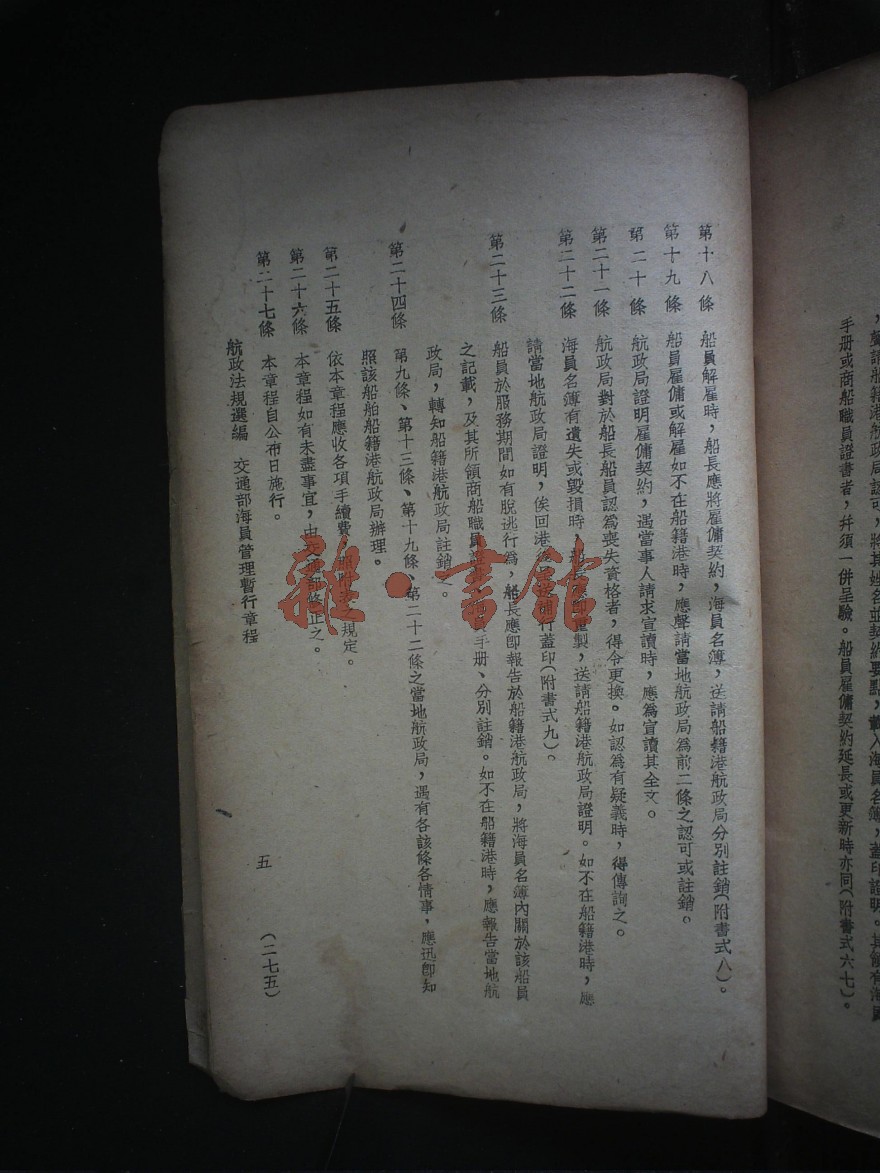 手册或商船職員證書者，幷須一併呈驗。船員雇傭契約延長或更新時亦同（附書式六七）。
第十八條　船員解雇時，船長應將雇傭契約，海員名簿，送請船籍港航政局分別註銷（附書式八）。
第十九條　船員雇傭或解雇如不在船籍港時，應聲請當地航政局爲前二條之認可或註銷。
第二十條　航政局證明雇傭契約，遇當事人請求宣讀時，應爲宣讀其全文。
第二十一條　航政局對於船長船員認爲喪失資格者，得令更換。如認爲有疑義時，得傳詢之。
第二十二條　海員名簿有遺失或毀損時，船長應卽重製，送請船籍港航政局證明。如不在船籍港時，應
請當地航政局證明，俟回港後行蓋印（附書式九）。
第二十三條　船員於服務期間如有脫逃行爲，船長應卽報告於船籍港航政局，將海員名簿內關於該船員
之記載，及其所領商船職員手册、分別註銷。如不在船籍港時，應報告當地航
政局，轉知船籍港航政局註銷。
第二十四條　第九條、第十三條、第十九條、第二十二條之當地航政局，遇有各該條各情事，應迅卽知
照該船舶船籍港航政局辦理。
第二十五條　依本章程應收各項手續費，規定。
第二十六條　本章程如有未盡事宜，由交通部修正之。
第二十七條　本章程自公布日施行。
航政法規選編　交通部海員管理暫行章程　五　（二七五）
雜·書館